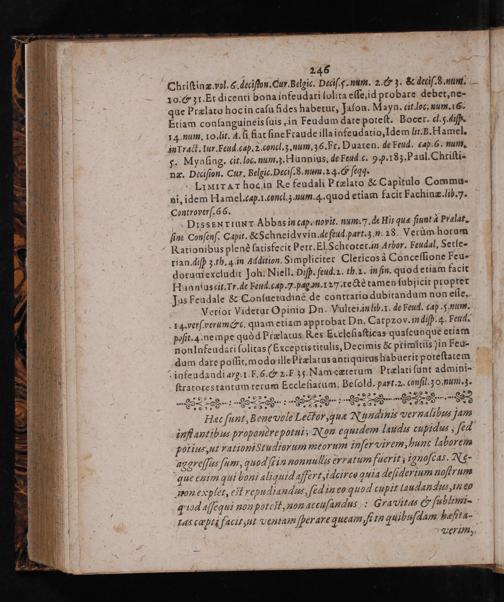 246
Christinæ.vol.6.decision.Cur.Belgic. Decis.5.num. 2.& 3. & decis.8.num.
10.& 31. Et dicenti bona infeudari solita esse, id probare debet, ne-
que Prælato hoc in casu fides habetur, Jason. Mayn. cit.loc.num.16.
Etiam consanguineis suis, in Feudum dare potest. Bocer. cl.5.disp.
14.num.10.lit.A. si fiat sine Fraude illa infeudatio, Idem lit.B. Hamel.
in Tract. Iur.Feud.cap.2.concl.3.num.36. Fr. Duaren. de Feud. cap.6. num.
5. Mynsing. cit.loc.num.3. Hunnius, de Feud.c. 9.p.183. Paul. Christi-
næ. Decision. Cur. Belgic. Decis.8.num.24.& seqq.
LIMITAT hoc in Re feudali Prælato & Capitulo Commu-
ni, idem Hamel.cap.1.concl.3.num.4. quod etiam facit Fachinæ.lib.7.
Controvers.66.
DISSENTIUNT Abbas in cap.novit.num.7.de His quæ fiunt à Prælat.
sine Consens. Capit. & Schneidvvin. de feud.part.3.n.28. Verùm horum
Rationibus plenè satisfecit Petr. El. Schroter. in Arbor. Feudal, Setse-
rian.disp 3.th.4.in Addition. Simpliciter Clericos à Concessione Feu-
dorum excludit Joh. Niell. Disp.feud.2. th.2. in fin. quod etiam facit
Hunnius cit.Tr.de Feud.cap.7.pag.m.127. rectè tamen subjicit propter
Jus Feudale & Consuetudinē de contrario dubitandum non esse.
Verior Videtur Opinio Dn. Vultei.in lib.1. de Feud. cap.5.num.
14.vers.verum &c. quam etiam approbat Dn. Carpzov. in disp.4. Feud.
posit.4. nempe quòd Prælatus Res Ecclesiasticas quascunque etiam
non Infeudari solitas (Exceptis titulis, Decimis & primitiis) in Feu-
dum dare possit, modo ille Prælatus antiquitus habuerit potestatem
infeudandi arg.1 F.6.& 2.F 35. Nam cæterum Prælati sunt admini-
stratores tantum rerum Ecclesiarum. Besold. part.2. consil.30.num.3.
Hæc sunt, Benevole Lector, quæ Nundinis vernalibus jam
instantibus proponere potui: Non equidem laudis cupidus, sed
potius, ut rationi Studiorum meorum inservirem, hunc laborem
aggressus sum, quod si in nonnullis erratum fuerit, ignoscas. Ne-
que enim qui boni aliquid affert, idcirco quia desiderium nostrum
non explet, est repudiandus, sed in eo quod cupit laudandus, in eo
quod assequi non potest, non accusandus: Gravitas & sublimi-
tas cœpti facit, ut veniam sperare queam, si in quibusdam hæsita-
verim,